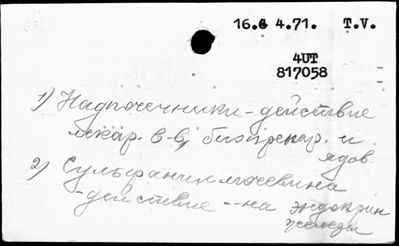 16.6 4.71. T.V.
4UT
817058
1) Надпочечники - действие
лекар. в-в,        и
ядов.
2) Сульфанилмочевина
- действие -- на эндокрин
железы